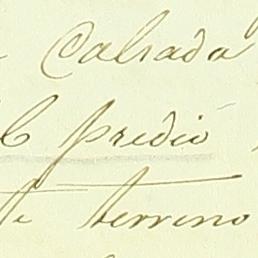 Calsada
predio
te terreno